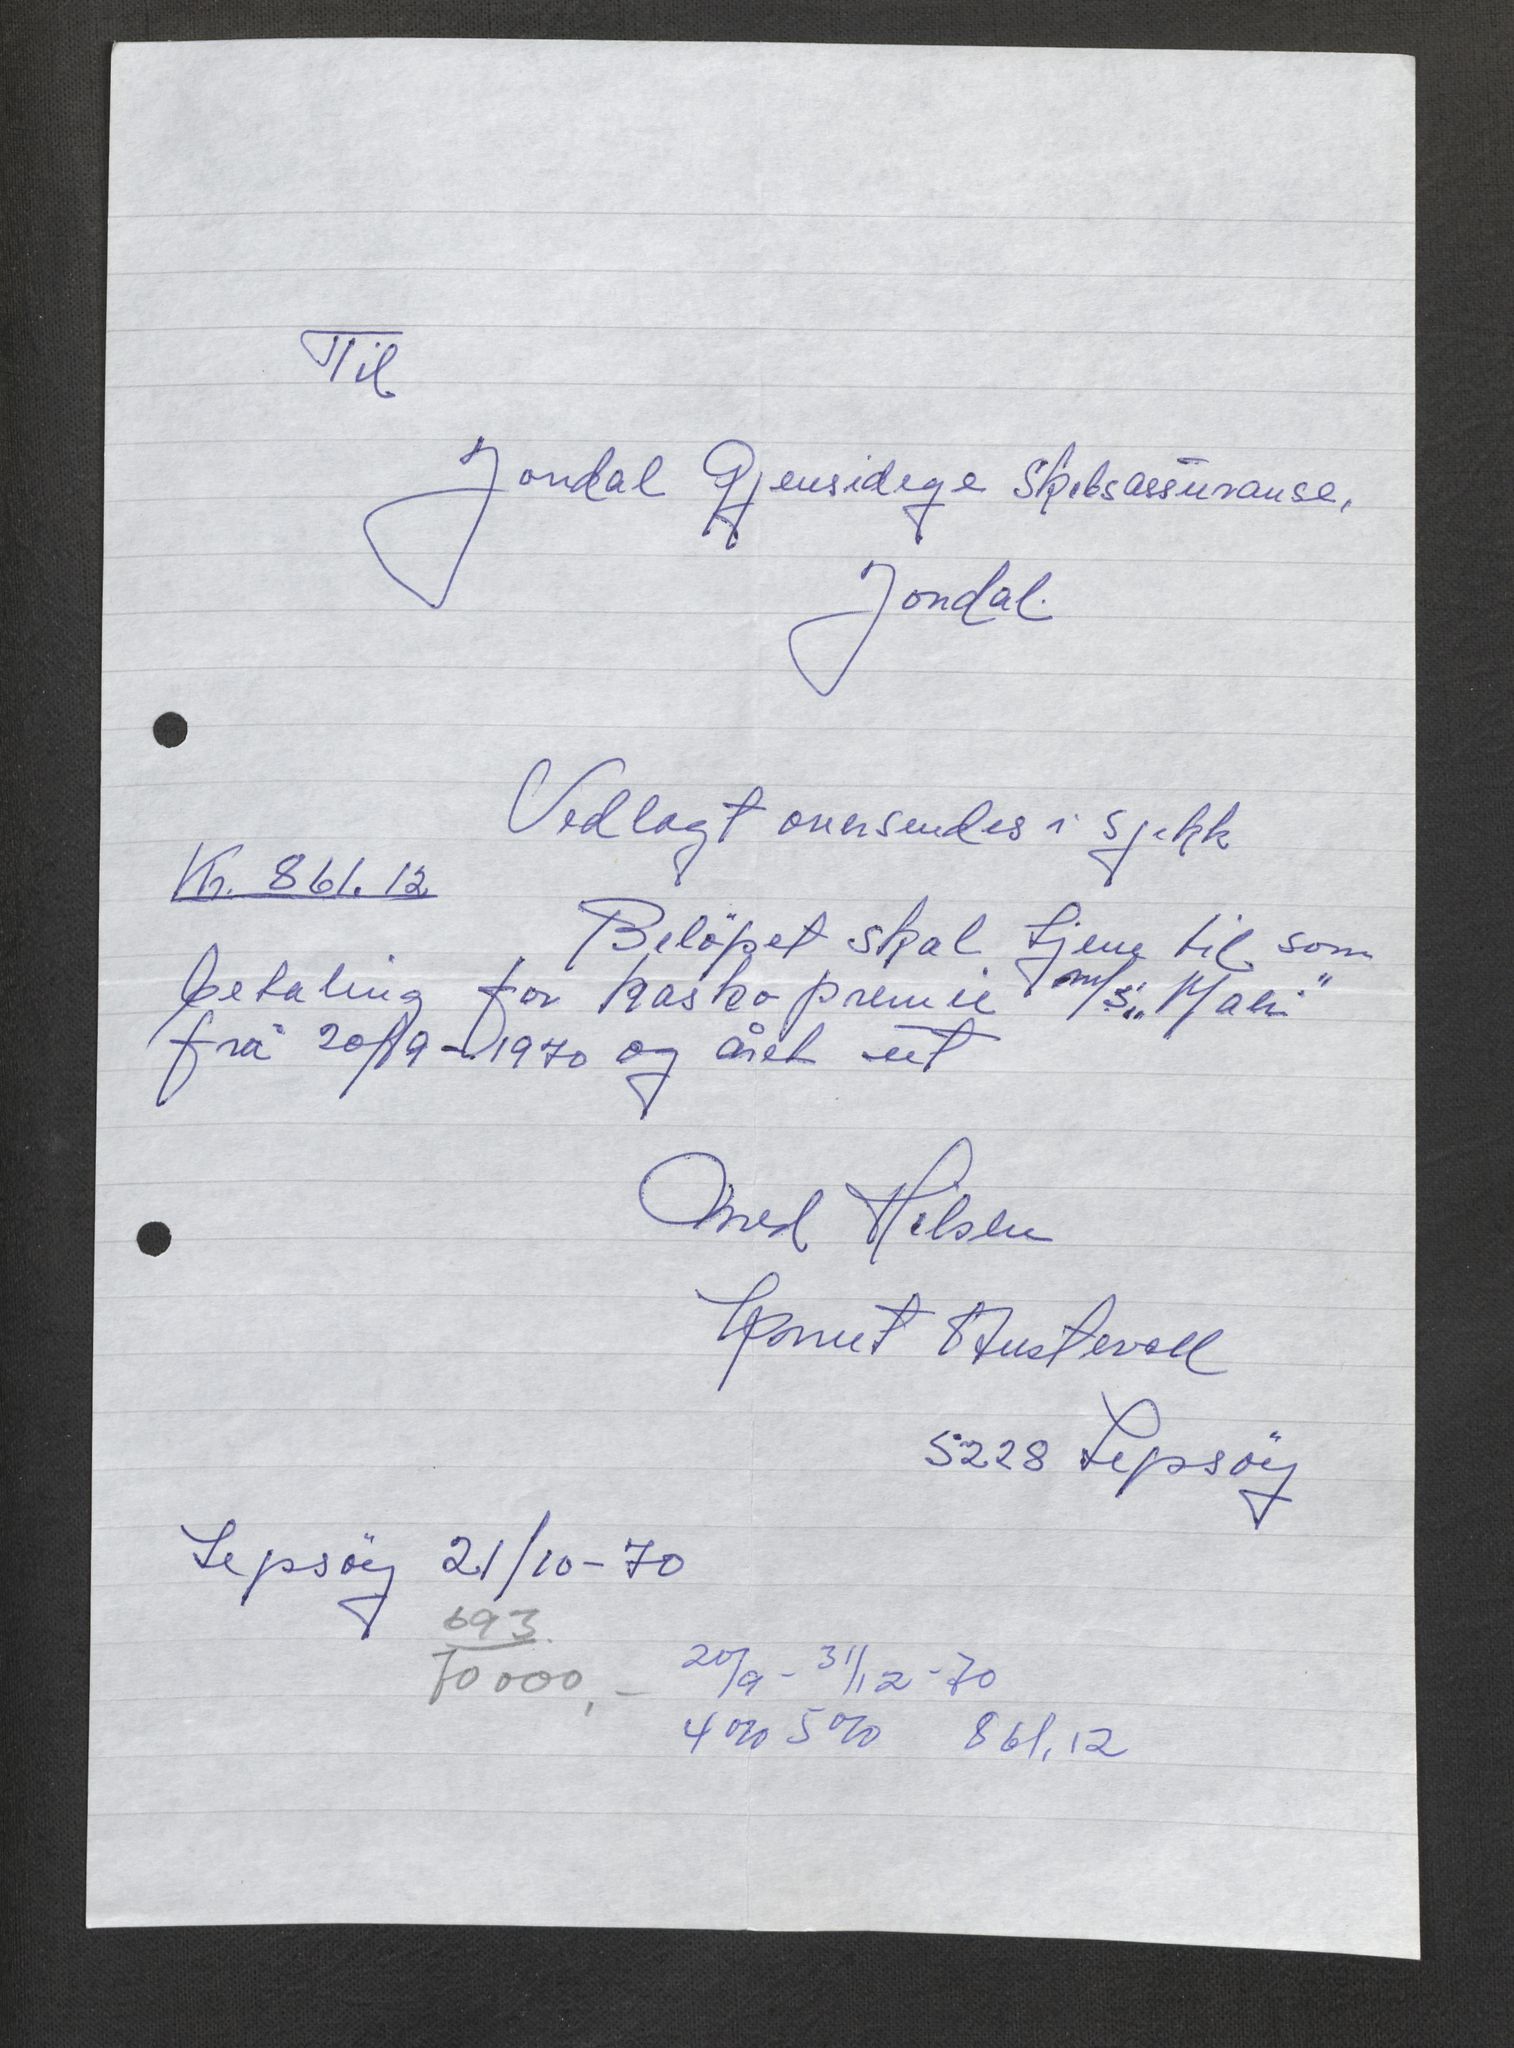 Til
Jondal Gjensidege Skibsassuranse,
Jondal.
Vedlagt oversendes i sjekk
Kr. 861.12
Belöpet skal tjene til som
betaling for kasko premie m/s
frå 20/9-1970 og året ut
Nilsen
Austevoll
5228 Lepsöy
Lepsöy 21/10-70
693.
70000,-
20/9-31/12-70
4% 5% 861,12